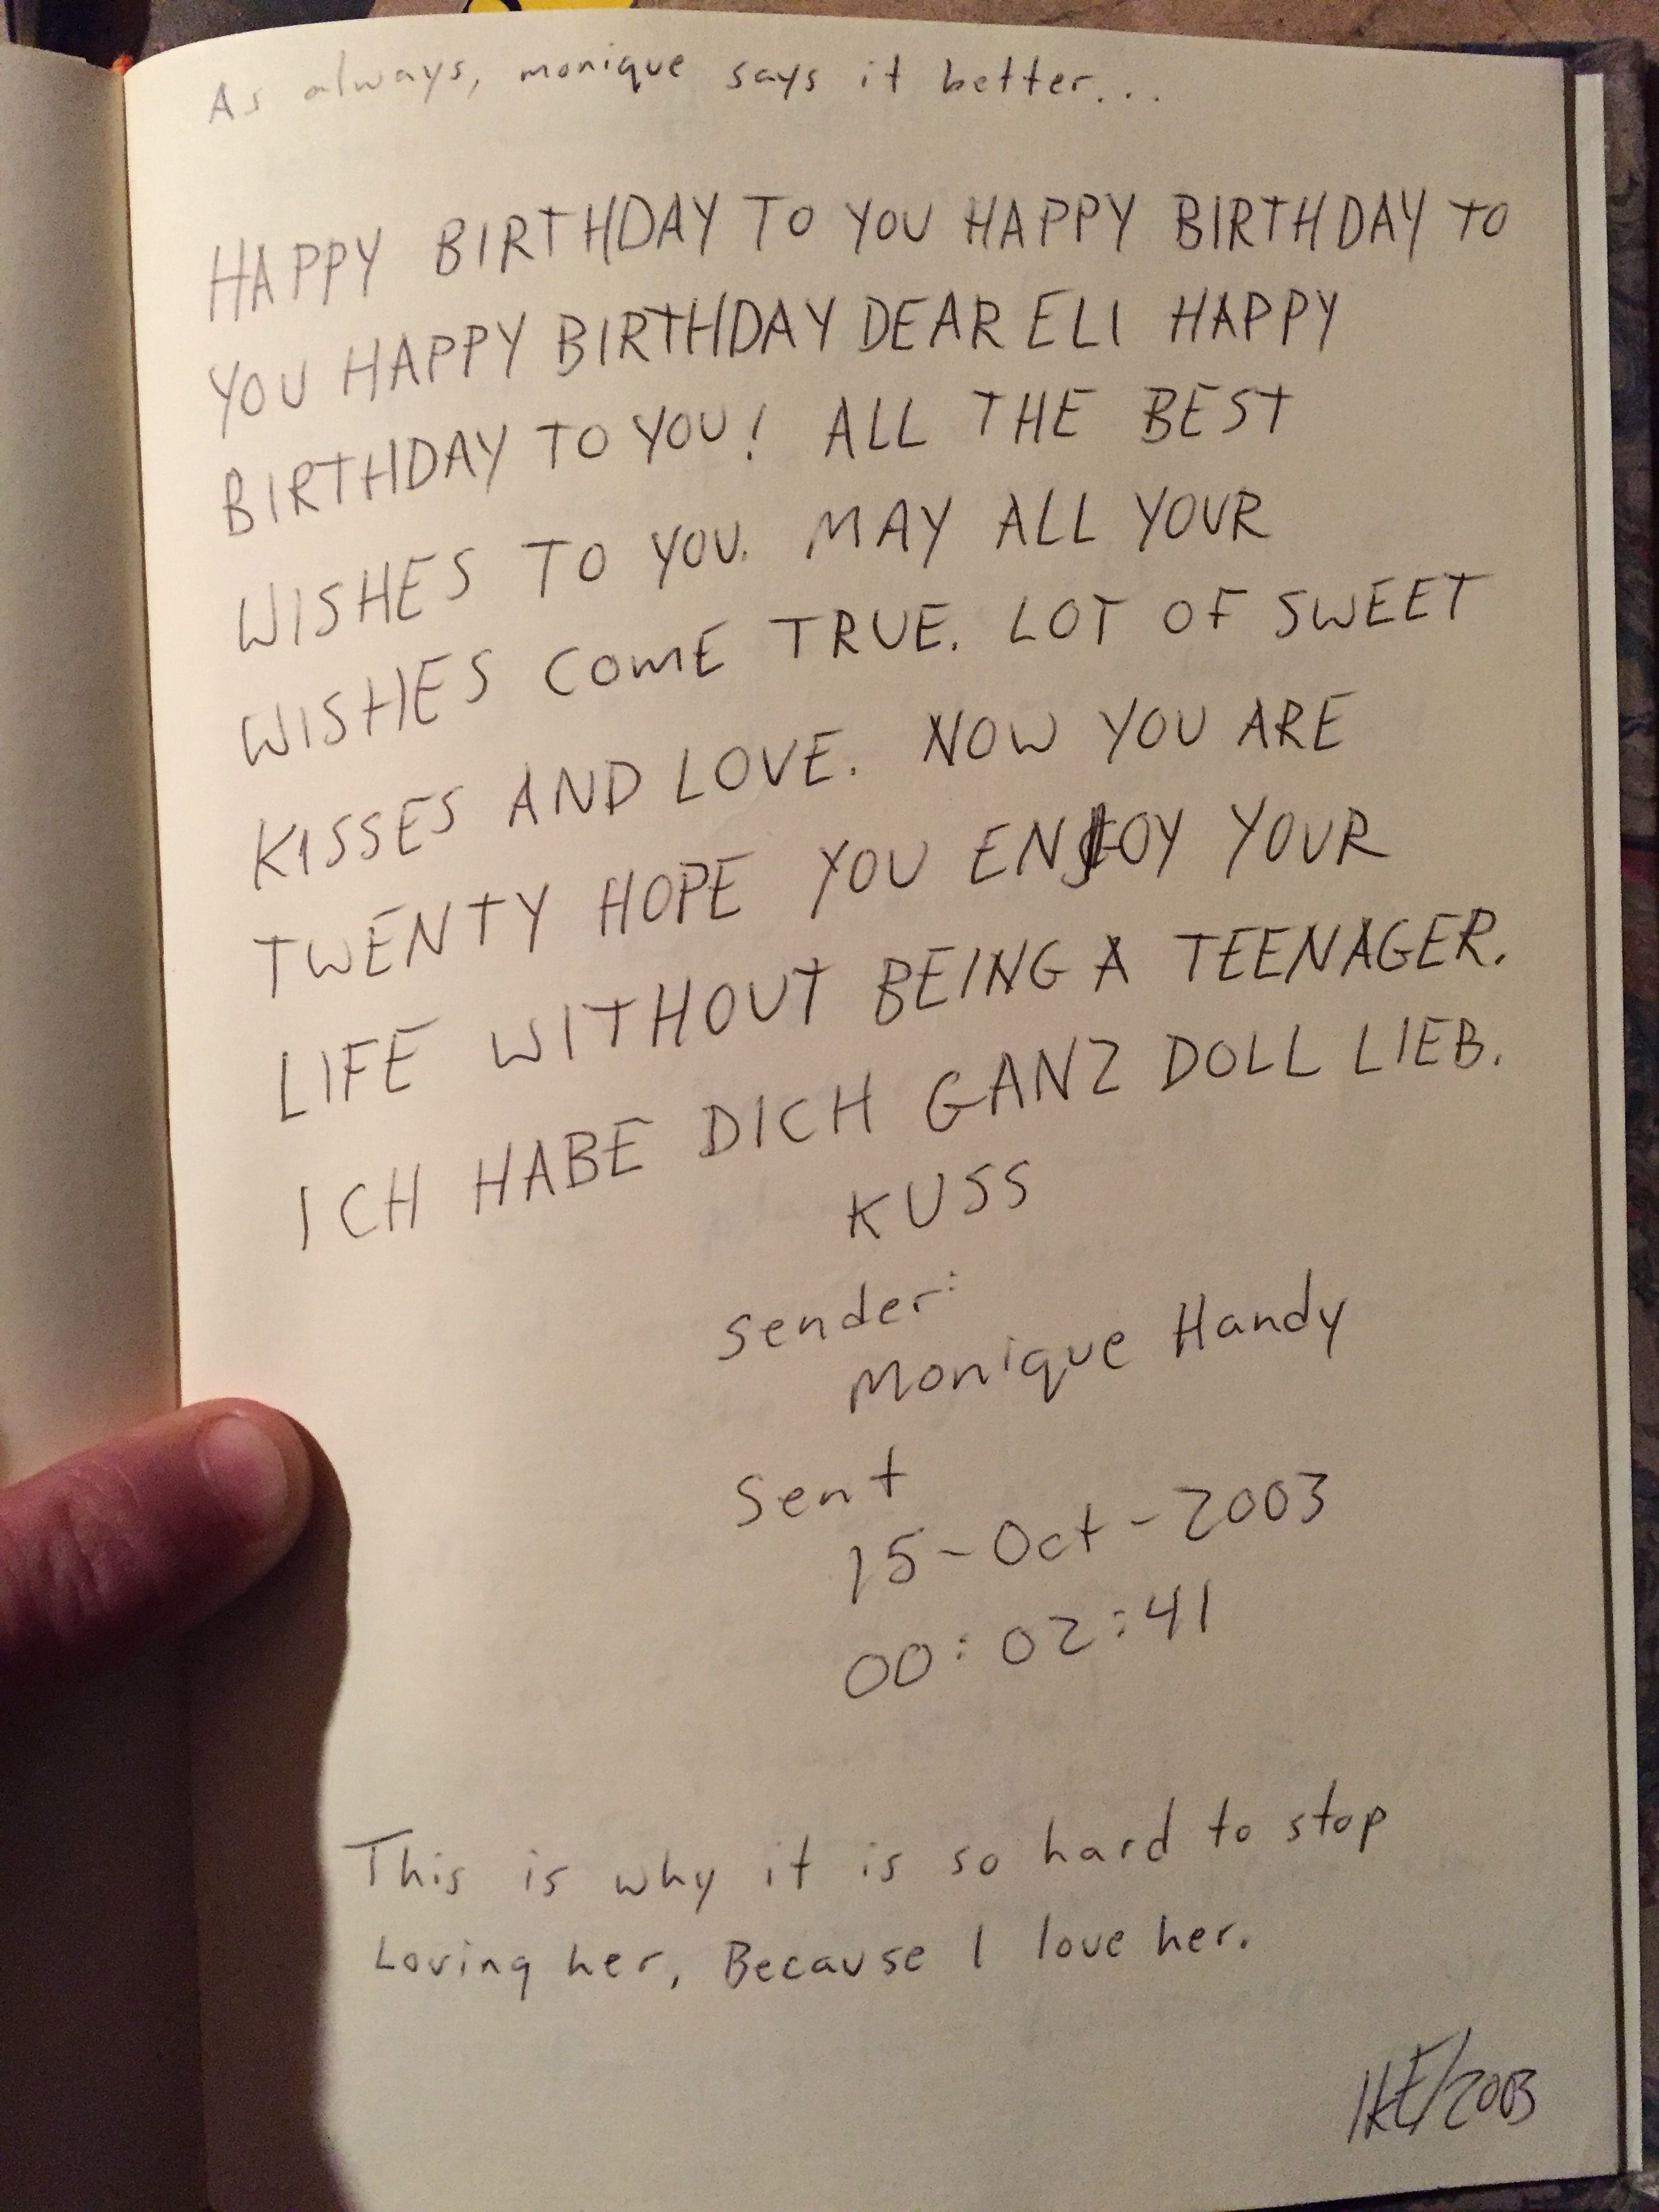 As always, monique says it better...
HAPPY BIRTHDAY TO YOU HAPPY BIRTHDAY TO
YOU HAPPY BIRTHDAY DEAR ELI HAPPY
BIRTHDAY TO YOU! ALL THE BEST
WISHES TO YOU. MAY ALL YOUR
WISHES COME TRUE. LOT OF SWEET
KISSES AND LOVE. NOW YOU ARE
TWENTY HOPE YOU ENJOY YOUR
LIFE WITHOUT BEING A TEENAGER.
ICH HABE DICH GANZ DOLL LIEB.
KUSS
Sender:
Monique Handy
Sent
15-Oct-2003
00:02:41
This is why it is so hard to stop
Loving her, Because I love her.
IKE/2003